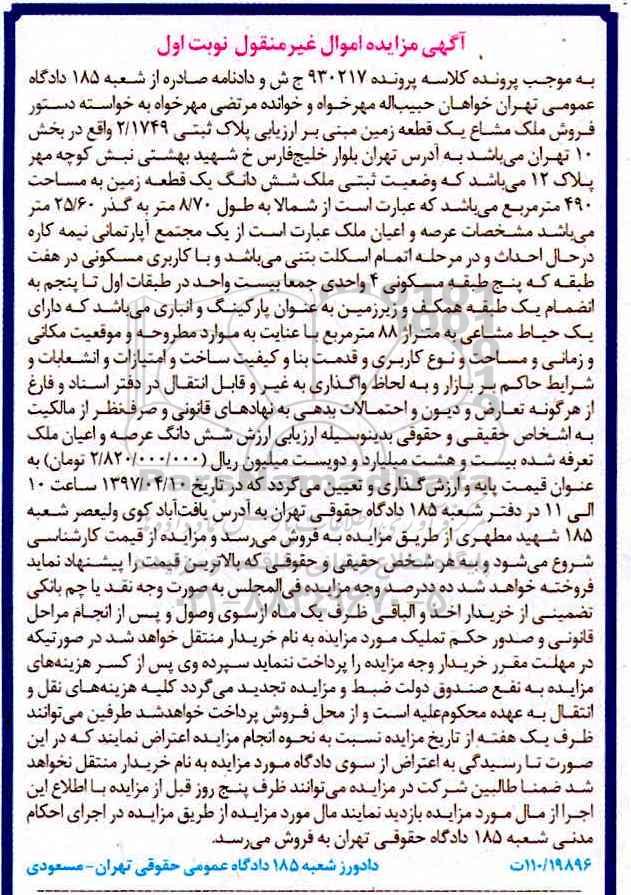 آگهی مزایده اموال غیرمنقول نوبت اول
به موجب پرونده کلاسه پرونده ۹۳۰۲۱۷ ج ش و دادنامه صادره از شعبه ۱۸۵ دادگاه
عمومی تهران خواهان حبیب‌اله مهرخواه و خوانده مرتضی مهرخواه به خواسته دستور
فروش ملک مشاع یک قطعه زمین مبنی بر ارزیابی پلاک ثبتی ۲/۱۷۴۹ واقع در بخش
۱۰ تهران می‌باشد به آدرس تهران بلوار خلیج‌فارس خ شهید بهشتی نبش کوچه مهر
پلاک ۱۲ می‌باشد که وضعیت ثبتی ملک شش دانگ یک قطعه زمین به مساحت
۴۹۰ مترمربع می‌باشد که عبارت است از شمالا به طول ۸/۷۰ متر به گذر ۲۵/۶۰ متر
می‌باشد مشخصات عرصه و اعیان ملک عبارت است از یک مجتمع آپارتمانی نیمه کاره
درحال احداث و در مرحله اتمام اسکلت بتنی می‌باشد و با کاربری مسکونی در هفت
طبقه که پنج طبقه مسکونی ۴ واحدی جمعا بیست واحد در طبقات اول تا پنجم به
انضمام یک طبقه همکف و زیرزمین به عنوان پارکینگ و انباری می‌باشد که دارای
یک حیاط مشاعی به متراژ ۸۸ مترمربع با عنایت به موارد مطروحه و موقعیت مکانی
و زمانی و مساحت و نوع کاربری و قدمت بنا و کیفیت ساخت و امتیازات و انشعابات و
شرایط حاکم بر بازار و به لحاظ واگذاری به غیر و قابل انتقال در دفتر اسناد و فارغ
از هرگونه تعارض و دیون و احتمالات بدهی به نهادهای قانونی و صرفنظر از مالکیت
به اشخاص حقیقی و حقوقی بدینوسیله ارزیابی ارزش شش دانگ عرصه و اعیان ملک
تعرفه شده بیست و هشت میلیارد و دویست میلیون ریال (۲/۸۲۰/۰۰۰/۰۰۰ تومان) به
عنوان قیمت پایه و ارزش‌گذاری و تعیین می‌گردد که در تاریخ ۱۳۹۷/۰۴/۱۰ ساعت ۱۰
الی ۱۱ در دفتر شعبه ۱۸۵ دادگاه حقوقی تهران به آدرس یافت‌آباد کوی ولیعصر شعبه
۱۸۵ شهید مطهری از طریق مزایده به فروش می‌رسد و مزایده از قیمت کارشناسی
شروع می‌شود و به هر شخص حقیقی و حقوقی که بالاترین قیمت را پیشنهاد نماید
فروخته خواهد شد ده درصد وجه مزایده فی‌المجلس به صورت وجه نقد یا چم بانکی
تضمینی از خریدار اخذ و الباقی ظرف یک ماه ازسوی وصول و پس از انجام مراحل
قانونی و صدور حکم تملیک مورد مزایده به نام خریدار منتقل خواهد شد در صورتیکه
در مهلت مقرر خریدار وجه مزایده را پرداخت ننماید سپرده وی پس از کسر هزینه‌های
مزایده به نفع صندوق دولت ضبط و مزایده تجدید می‌گردد کلیه هزینه‌های نقل و
انتقال به عهده محکوم‌علیه است و از محل فروش پرداخت خواهدشد طرفین می‌توانند
ظرف یک هفته از تاریخ مزایده نسبت به نحوه انجام مزایده اعتراض نمایند که در این
صورت تا رسیدگی به اعتراض از سوی دادگاه مورد مزایده به نام خریدار منتقل نخواهد
شد ضمنا طالبین شرکت در مزایده می‌توانند ظرف پنج روز قبل از مزایده با اطلاع این
اجرا از مال مورد مزایده بازدید نمایند مال مورد مزایده از طریق مزایده در اجرای احکام
مدنی شعبه ۱۸۵ دادگاه حقوقی تهران به فروش می‌رسد.
۱۱۰/۱۹۸۹۶ت دادورز شعبه ۱۸۵ دادگاه عمومی حقوقی تهران - مسعودی